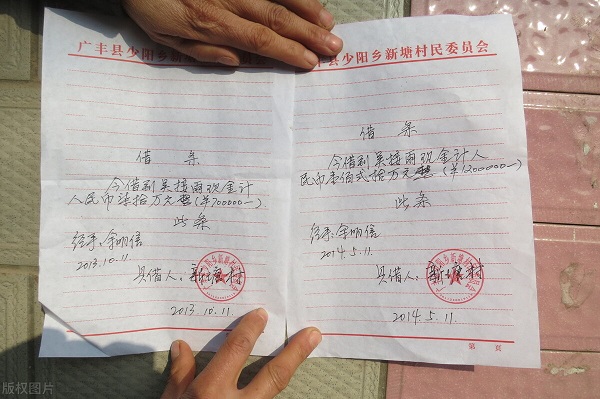 广丰县少阳乡新塘
借 条
今借到吴接雨现金计
人民币柒拾万元整(¥700000—)
此条
经手:余明信
2013.10.11.
具借人:新塘村
2013.10.11.
丰县少阳乡新塘村民委员会
借 条
今借到吴接雨现金计人
民币壹佰弍拾万元整(¥1200000—)
此条
经手:余明信
2014.5.11.
具借人:新塘村
2014.5.11.
第 页
版权图片